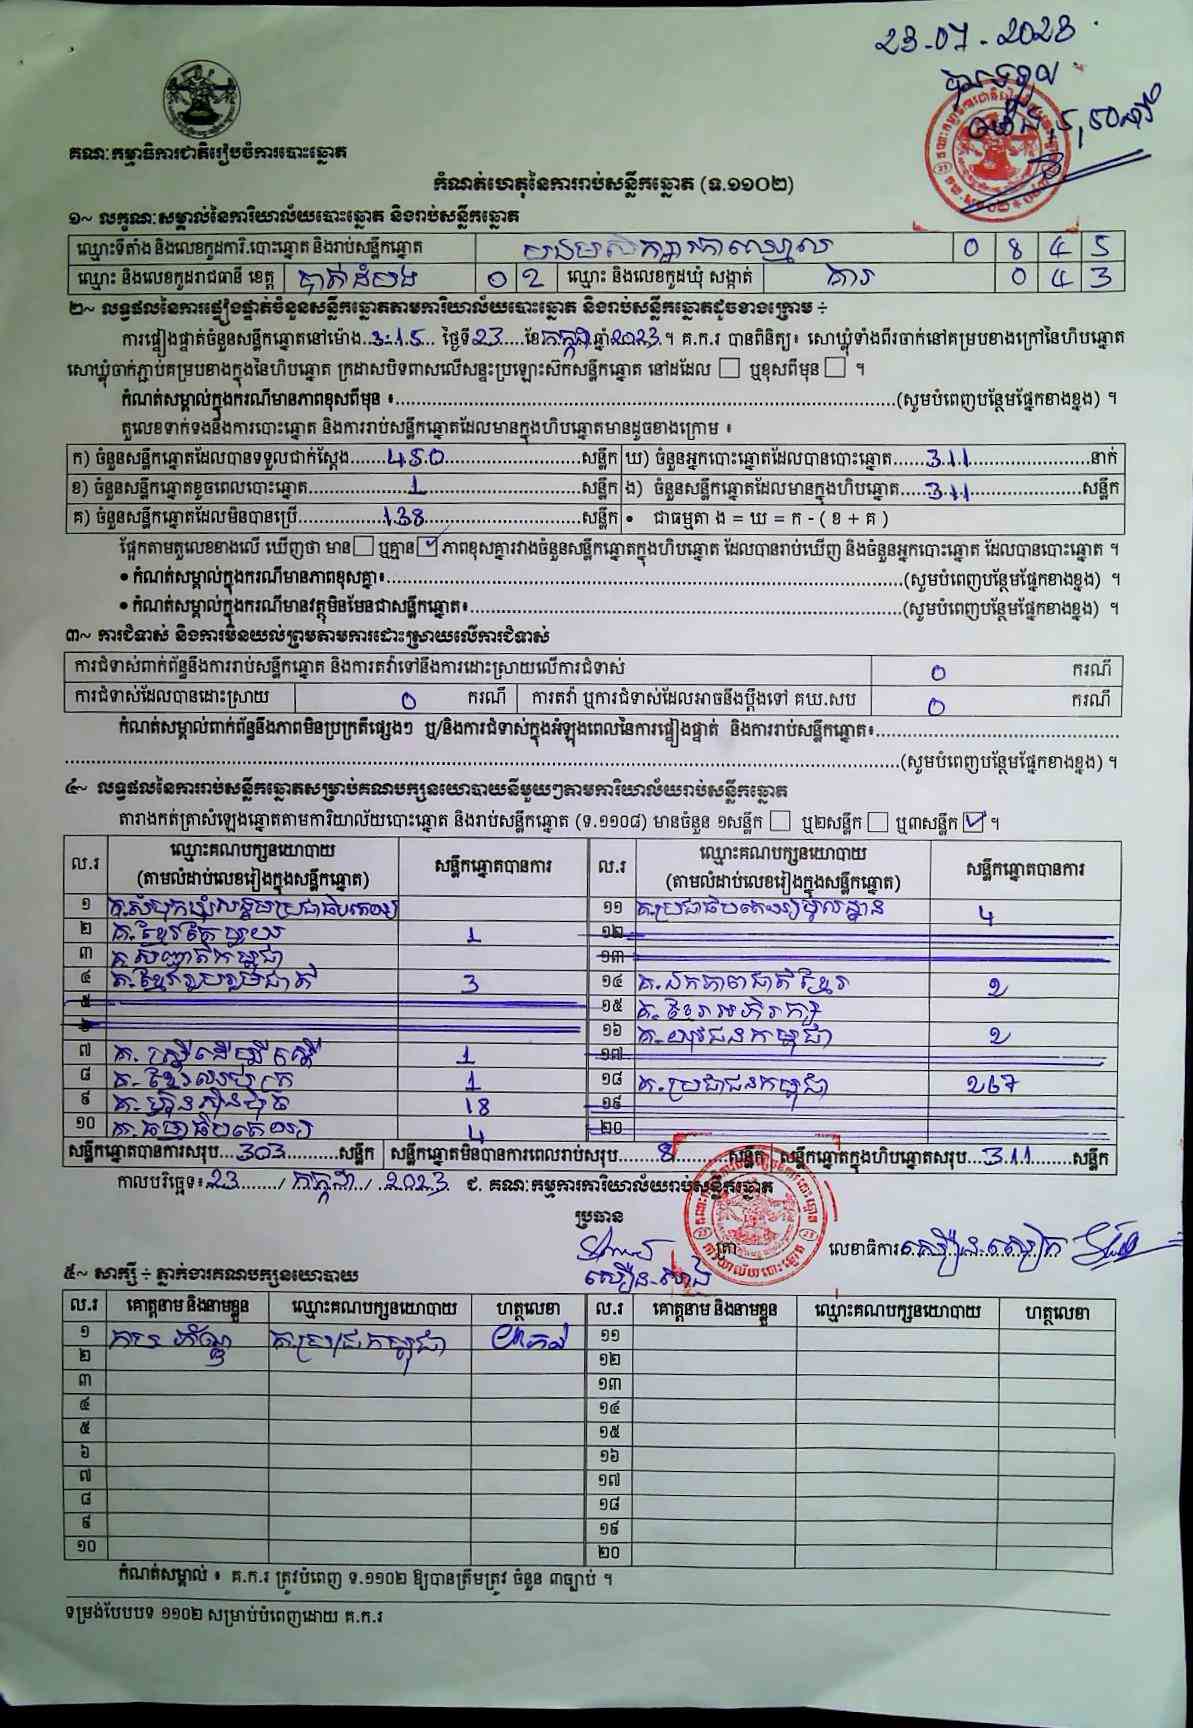 23-07-2023
គណៈកម្មាធិការជាតិរៀបចំការបោះឆ្នោត
កំណត់ហេតុនៃការរាប់សន្លឹកឆ្នោត (ទ.១១០២)
១~ លក្ខណៈសម្គាល់នៃការិយាល័យបោះឆ្នោត និងរាប់សន្លឹកឆ្នោត
ឈ្មោះទីតាំង និងលេខកូដការិ.បោះឆ្នោត និងរាប់សន្លឹកឆ្នោត 0 8 4 5
ឈ្មោះ និងលេខកូដរាជធានី ខេត្ត បាត់ដំបង 0 2 ឈ្មោះ និងលេខកូដឃុំ សង្កាត់ 0 4 3
២~ លទ្ធផលនៃការផ្ទៀងផ្ទាត់ចំនួនសន្លឹកឆ្នោតតាមការិយាល័យបោះឆ្នោត និងរាប់សន្លឹកឆ្នោតដូចខាងក្រោម ÷
ការផ្ទៀងផ្ទាត់ចំនួនសន្លឹកឆ្នោតនៅម៉ោង...3:15... ថ្ងៃទី23....ខែកក្កដាឆ្នាំ2023។ គ.ក.រ បានពិនិត្យ៖ សោឃ្លុំទាំងពីរចាក់នៅគម្របខាងក្រៅនៃហិបឆ្នោត
សោឃ្លុំចាក់ភ្ជាប់គម្របខាងក្នុងនៃហិបឆ្នោត ក្រដាសបិទពាសលើសន្ទះប្រឡោះស៊កសន្លឹកឆ្នោត នៅដដែល ☐ ឬខុសពីមុន ☐ ។
កំណត់សម្គាល់ក្នុងករណីមានភាពខុសពីមុន ៖....................(សូមបំពេញបន្ថែមផ្នែកខាងខ្នង) ។
តួលេខទាក់ទងនឹងការបោះឆ្នោត និងការរាប់សន្លឹកឆ្នោតដែលមានក្នុងហិបឆ្នោតមានដូចខាងក្រោម ៖
ក) ចំនួនសន្លឹកឆ្នោតដែលបានទទួលជាក់ស្តែង......450......សន្លឹក ឃ) ចំនួនអ្នកបោះឆ្នោតដែលបានបោះឆ្នោត......311......នាក់
ខ) ចំនួនសន្លឹកឆ្នោតខូចពេលបោះឆ្នោត......1......សន្លឹក ង) ចំនួនសន្លឹកឆ្នោតដែលមានក្នុងហិបឆ្នោត......311......សន្លឹក
គ) ចំនួនសន្លឹកឆ្នោតដែលមិនបានប្រើ......138......សន្លឹក • ជាធម្មតា ង = ឃ = ក - ( ខ + គ )
ផ្អែកតាមតួលេខខាងលើ ឃើញថា មាន ☐ ឬគ្មាន ☑ ភាពខុសគ្នារវាងចំនួនសន្លឹកឆ្នោតក្នុងហិបឆ្នោត ដែលបានរាប់ឃើញ និងចំនួនអ្នកបោះឆ្នោត ដែលបានបោះឆ្នោត ។
• កំណត់សម្គាល់ក្នុងករណីមានភាពខុសគ្នា៖....................(សូមបំពេញបន្ថែមផ្នែកខាងខ្នង) ។
• កំណត់សម្គាល់ក្នុងករណីមានវត្ថុមិនមែនជាសន្លឹកឆ្នោត៖....................(សូមបំពេញបន្ថែមផ្នែកខាងខ្នង) ។
៣~ ការជំទាស់ និងការមិនយល់ព្រមតាមការដោះស្រាយលើការជំទាស់
ការជំទាស់ពាក់ព័ន្ធនឹងការរាប់សន្លឹកឆ្នោត និងការតវ៉ាទៅនឹងការដោះស្រាយលើការជំទាស់ 0 ករណី
ការជំទាស់ដែលបានដោះស្រាយ 0 ករណី ការតវ៉ា ឬការជំទាស់ដែលអាចនឹងប្តឹងទៅ គឃ.សប 0 ករណី
កំណត់សម្គាល់ពាក់ព័ន្ធនឹងភាពមិនប្រក្រតីផ្សេងៗ ឬ/និងការជំទាស់ក្នុងអំឡុងពេលនៃការផ្ទៀងផ្ទាត់ និងការរាប់សន្លឹកឆ្នោត៖....................
....................(សូមបំពេញបន្ថែមផ្នែកខាងខ្នង) ។
៤~ លទ្ធផលនៃការរាប់សន្លឹកឆ្នោតសម្រាប់គណបក្សនយោបាយនីមួយៗតាមការិយាល័យរាប់សន្លឹកឆ្នោត
តារាងកត់ត្រាសំឡេងឆ្នោតតាមការិយាល័យបោះឆ្នោត និងរាប់សន្លឹកឆ្នោត (ទ.១១០៨) មានចំនួន ១សន្លឹក ☐ ឬ២សន្លឹក ☐ ឬ៣សន្លឹក ☑ ។
ល.រ ឈ្មោះគណបក្សនយោបាយ (តាមលំដាប់លេខរៀងក្នុងសន្លឹកឆ្នោត) សន្លឹកឆ្នោតបានការ ល.រ ឈ្មោះគណបក្សនយោបាយ (តាមលំដាប់លេខរៀងក្នុងសន្លឹកឆ្នោត) សន្លឹកឆ្នោតបានការ
១ គ.សំបុកឃ្មុំសង្គមប្រជាធិបតេយ្យ ១១ គ.ប្រជាធិបតេយ្យមូលដ្ឋាន 4
២ គ.ខ្មែរតែមួយ 1 ១២
៣ គ.សញ្ជាតិកម្ពុជា ១៣
៤ គ.ខ្មែររួបរួមជាតិ 3 ១៤ គ.ឯកភាពជាតិខ្មែរ 2
៥ ១៥ គ.ខ្មែរអភិរក្ស
៦ ១៦ គ.យុវជនកម្ពុជា 2
៧ គ.ស្រ្តីដើម្បីស្រ្តី 1 ១៧
៨ គ.ខ្មែរឈប់ក្រ 1 ១៨ គ.ប្រជាជនកម្ពុជា 267
៩ គ.ហ៊្វុនស៊ិនប៉ិច 18 ១៩
១០ គ.ធម្មាធិបតេយ្យ 4 ២០
សន្លឹកឆ្នោតបានការសរុប...303......សន្លឹក សន្លឹកឆ្នោតមិនបានការពេលរាប់សរុប......8......សន្លឹក សន្លឹកឆ្នោតក្នុងហិបឆ្នោតសរុប...311......សន្លឹក
កាលបរិច្ឆេទ៖23....../កក្កដា../..2023. ជ. គណៈកម្មការការិយាល័យរាប់សន្លឹកឆ្នោត
ប្រធាន
ត្រា លេខាធិការ
៥~ សាក្សី ÷ ភ្នាក់ងារគណបក្សនយោបាយ
ល.រ គោត្តនាម និងនាមខ្លួន ឈ្មោះគណបក្សនយោបាយ ហត្ថលេខា ល.រ គោត្តនាម និងនាមខ្លួន ឈ្មោះគណបក្សនយោបាយ ហត្ថលេខា
១ ១១
២ ១២
៣ ១៣
៤ ១៤
៥ ១៥
៦ ១៦
៧ ១៧
៨ ១៨
៩ ១៩
១០ ២០
កំណត់សម្គាល់ ៖ គ.ក.រ ត្រូវបំពេញ ទ.១១០២ ឱ្យបានត្រឹមត្រូវ ចំនួន ៣ច្បាប់ ។
ទម្រង់បែបបទ ១១០២ សម្រាប់បំពេញដោយ គ.ក.រ